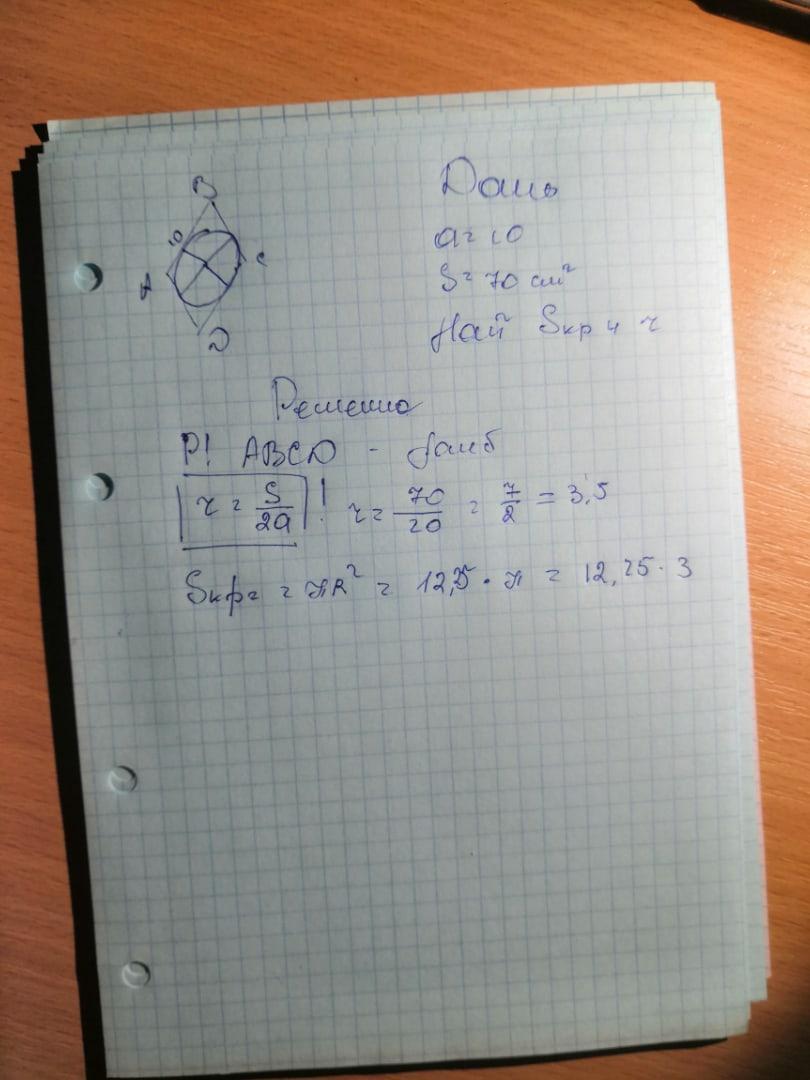 B
10
A
C
D
Дань
a = 10
S = 70 см²
Най Sкр и r
Решено
P! ABCD - ромб
r = S/2a ! r = 70/20 = 7/2 = 3,5
Sкр = = πR² = 12,25 · π = 12,25 · 3